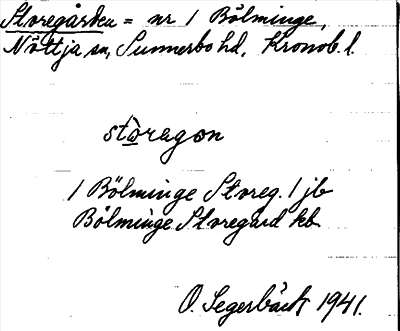 Storegården = nr 1 Bölminge,
Nöttja sn, Sunnerbo hd, Kronob. l.
storagon
1 Bölminge Storeg. 1 jb
Bölminge Storegård kb
O. Segerbäck 1941.